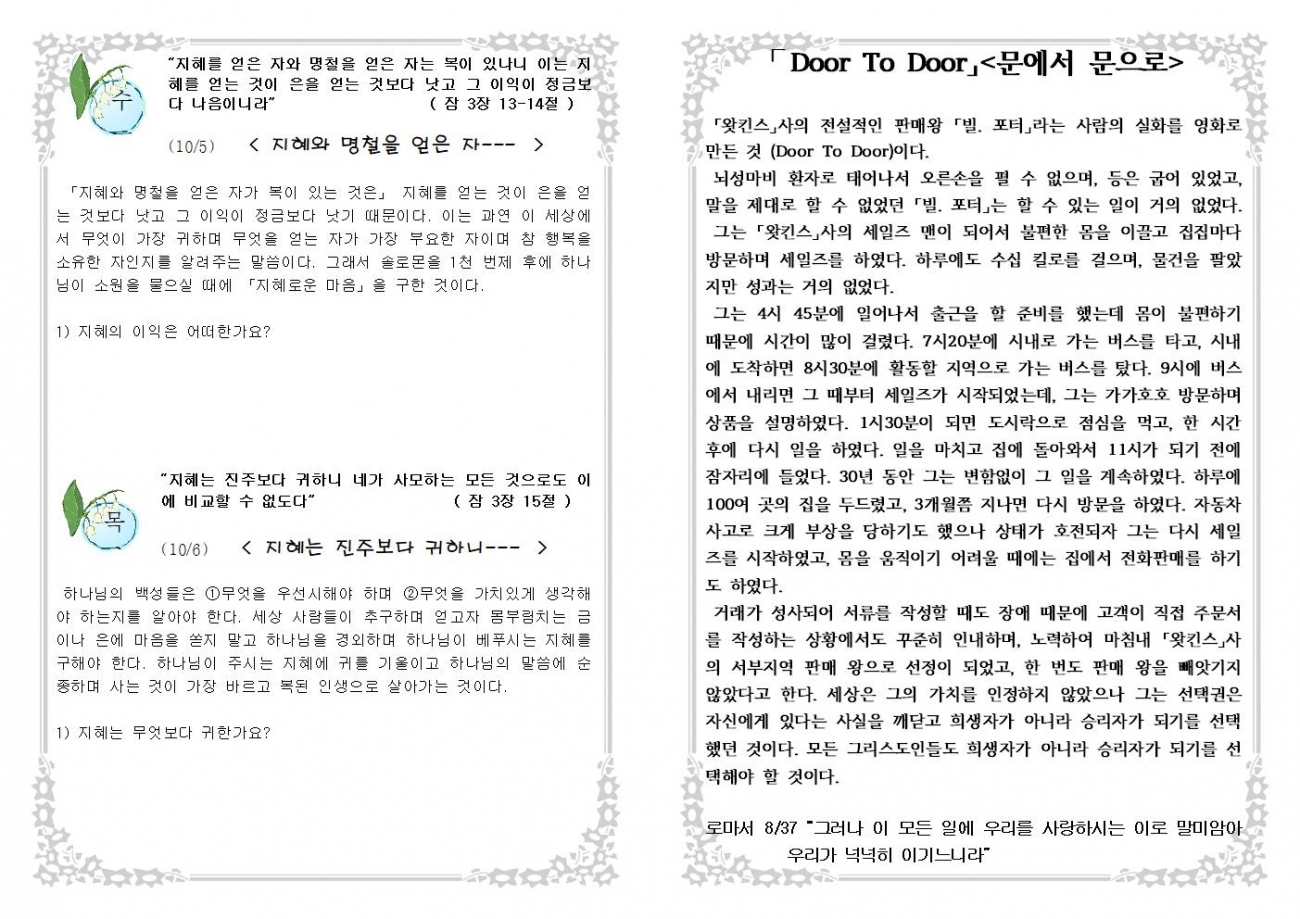 "지혜를 얻은 자와 명철을 얻은 자는 복이 있나니 이는 지
혜를 얻는 것이 은을 얻는 것보다 낫고 그 이익이 정금보
다 나음이니라" ( 잠 3장 13-14절 )
수
(10/5) < 지혜와 명철을 얻은 자--- >
「지혜와 명철을 얻은 자가 복이 있는 것은」 지혜를 얻는 것이 은을 얻
는 것보다 낫고 그 이익이 정금보다 낫기 때문이다. 이는 과연 이 세상에
서 무엇이 가장 귀하며 무엇을 얻는 자가 가장 부요한 자이며 참 행복을
소유한 자인지를 알려주는 말씀이다. 그래서 솔로몬을 1천 번제 후에 하나
님이 소원을 물으실 때에 「지혜로운 마음」을 구한 것이다.
1) 지혜의 이익은 어떠한가요?
"지혜는 진주보다 귀하니 네가 사모하는 모든 것으로도 이
에 비교할 수 없도다" ( 잠 3장 15절 )
목
(10/6) < 지혜는 진주보다 귀하니--- >
하나님의 백성들은 ①무엇을 우선시해야 하며 ②무엇을 가치있게 생각해
야 하는지를 알아야 한다. 세상 사람들이 추구하며 얻고자 몸부림치는 금
이나 은에 마음을 쏟지 말고 하나님을 경외하며 하나님이 베푸시는 지혜를
구해야 한다. 하나님이 주시는 지혜에 귀를 기울이고 하나님의 말씀에 순
종하며 사는 것이 가장 바르고 복된 인생으로 살아가는 것이다.
1) 지혜는 무엇보다 귀한가요?
「Door To Door」<문에서 문으로>
「왓킨스」사의 전설적인 판매왕 「빌. 포터」라는 사람의 실화를 영화로
만든 것 (Door To Door)이다.
뇌성마비 환자로 태어나서 오른손을 필 수 없으며, 등은 굽어 있었고,
말을 제대로 할 수 없었던 「빌. 포터」는 할 수 있는 일이 거의 없었다.
그는 「왓킨스」사의 세일즈 맨이 되어서 불편한 몸을 이끌고 집집마다
방문하며 세일즈를 하였다. 하루에도 수십 킬로를 걸으며, 물건을 팔았
지만 성과는 거의 없었다.
그는 4시 45분에 일어나서 출근을 할 준비를 했는데 몸이 불편하기
때문에 시간이 많이 걸렸다. 7시20분에 시내로 가는 버스를 타고, 시내
에 도착하면 8시30분에 활동할 지역으로 가는 버스를 탔다. 9시에 버스
에서 내리면 그 때부터 세일즈가 시작되었는데, 그는 가가호호 방문하며
상품을 설명하였다. 1시30분이 되면 도시락으로 점심을 먹고, 한 시간
후에 다시 일을 하였다. 일을 마치고 집에 돌아와서 11시가 되기 전에
잠자리에 들었다. 30년 동안 그는 변함없이 그 일을 계속하였다. 하루에
100여 곳의 집을 두드렸고, 3개월쯤 지나면 다시 방문을 하였다. 자동차
사고로 크게 부상을 당하기도 했으나 상태가 호전되자 그는 다시 세일
즈를 시작하였고, 몸을 움직이기 어려울 때에는 집에서 전화판매를 하기
도 하였다.
거래가 성사되어 서류를 작성할 때도 장애 때문에 고객이 직접 주문서
를 작성하는 상황에서도 꾸준히 인내하며, 노력하여 마침내 「왓킨스」사
의 서부지역 판매 왕으로 선정이 되었고, 한 번도 판매 왕을 빼앗기지
않았다고 한다. 세상은 그의 가치를 인정하지 않았으나 그는 선택권은
자신에게 있다는 사실을 깨닫고 희생자가 아니라 승리자가 되기를 선택
했던 것이다. 모든 그리스도인들도 희생자가 아니라 승리자가 되기를 선
택해야 할 것이다.
로마서 8/37 "그러나 이 모든 일에 우리를 사랑하시는 이로 말미암아
우리가 넉넉히 이기느니라"